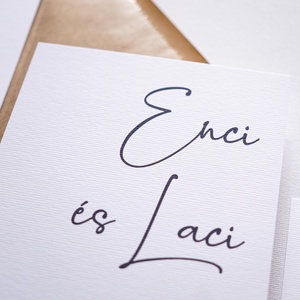 Enci
és Laci